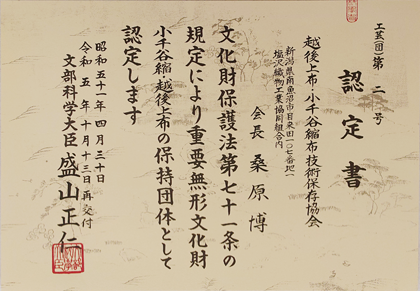 工芸(団)第二号
認定書
越後上布・小千谷縮布技術保存協会
新潟県南魚沼市目来田一〇七番地一
塩沢織物工業協同組合内
会長 桑原博
文化財保護法第七十一条の
規定により重要無形文化財
小千谷縮・越後上布の保持団体として
認定します
昭和五十一年四月三十日
令和五年十月十三日再交付
文部科学大臣 盛山正仁